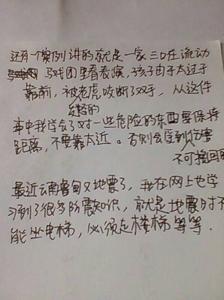 还有一个案例讲的就是一家三口在流动
马戏团里看表演,孩子由于太过于
靠前,被老虎咬断了双手,从这件
事中我学会了对一些危险的东西要保持
距离,不要靠太近。否则会受到伤害
不可挽回
最近云南省又地震了,我在网上也学
习到了很多防震知识,就是地震时不
能坐电梯,必须走楼梯等等。